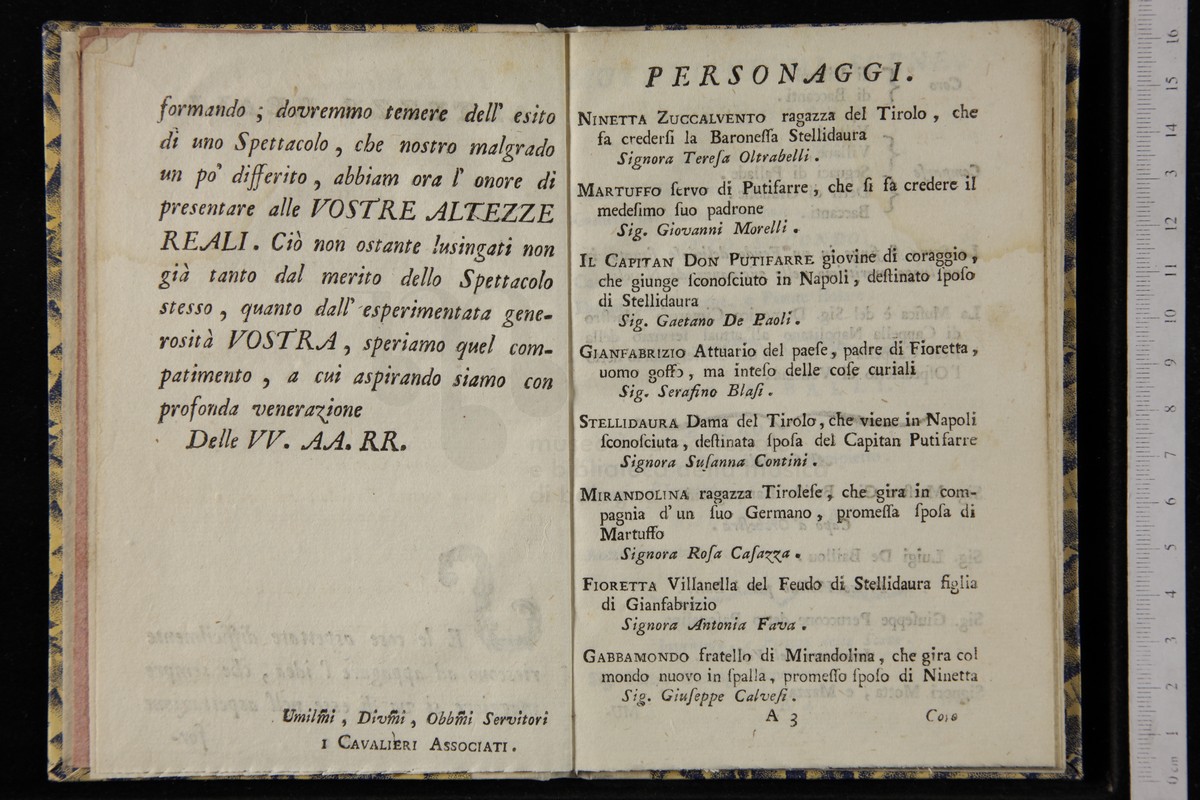 formando ; dovremmo temere dell' esito
di uno Spettacolo , che nostro malgrado
un po' differito , abbiam ora l' onore di
presentare alle VOSTRE ALTEZZE
REALI. Ciò non ostante lusingati non
già tanto dal merito dello Spettacolo
stesso , quanto dall' esperimentata gene-
rosità VOSTRA , speriamo quel com-
patimento , a cui aspirando siamo con
profonda venerazione
Delle VV. AA. RR.
Umilm̃i , Divm̃i , Obbm̃i Servitori
I CAVALIERI ASSOCIATI .
PERSONAGGI.
NINETTA ZUCCALVENTO ragazza del Tirolo , che
fa crederſi la Baroneſſa Stellidaura
Signora Tereſa Oltrabelli .
MARTUFFO ſervo di Putifarre , che ſi fa credere il
medeſimo ſuo padrone
Sig. Giovanni Morelli .
IL CAPITAN DON PUTIFARRE giovine di coraggio ,
che giunge ſconoſciuto in Napoli , deſtinato ſpoſo
di Stellidaura
Sig. Gaetano De Paoli .
GIANFABRIZIO Attuario del paeſe , padre di Fioretta ,
uomo goffo , ma inteſo delle coſe curiali
Sig. Serafino Blaſi .
STELLIDAURA Dama del Tirolo , che viene in Napoli
ſconoſciuta , deſtinata ſpoſa del Capitan Putifarre
Signora Suſanna Contini .
MIRANDOLINA ragazza Tiroleſe , che gira in com-
pagnia d' un ſuo Germano , promeſſa ſpoſa di
Martuffo
Signora Roſa Caſazza .
FIORETTA Villanella del Feudo di Stellidaura figlia
di Gianfabrizio
Signora Antonia Fava .
GABBAMONDO fratello di Mirandolina , che gira col
mondo nuovo in ſpalla , promeſſo ſpoſo di Ninetta
Sig. Giuſeppe Calveſi .
A 3 Coro